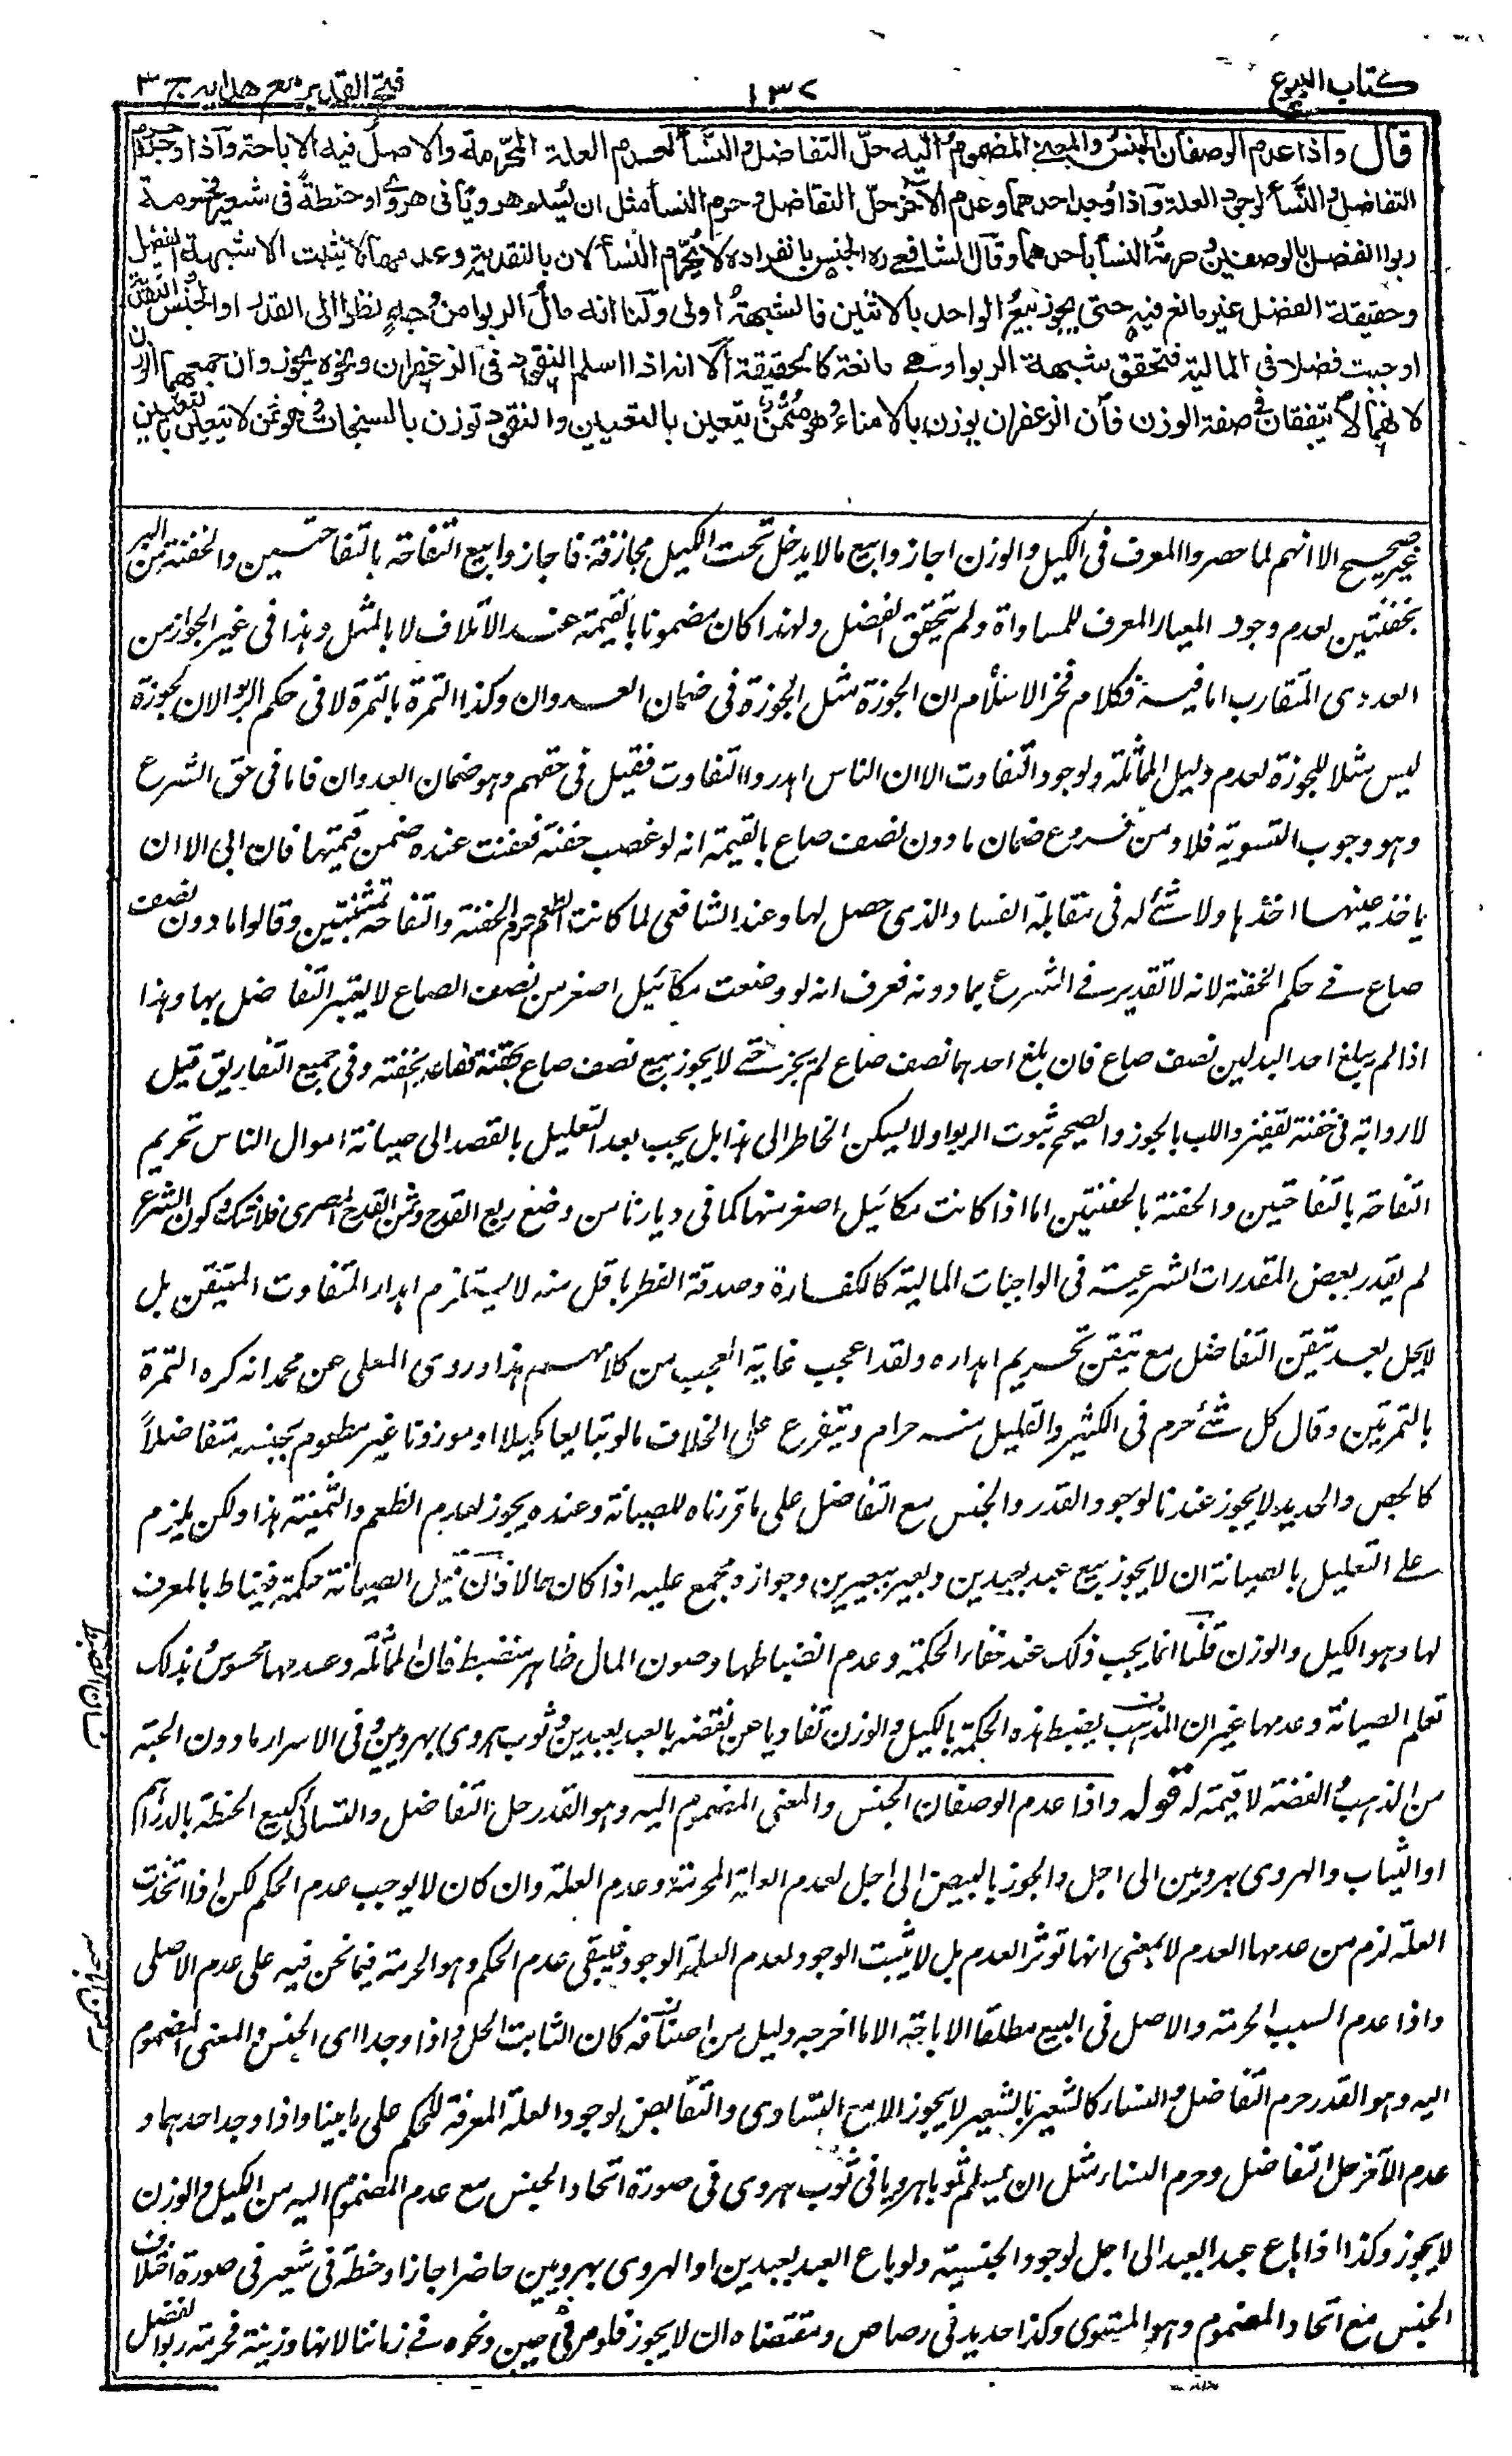 كتاب البيوع
١٣٧
فتح القدير مع هداية ج ٣
قال واذا عدم الوصفان الجنس والمعنى المضموم اليه حل التفاضل والنسأ لعدم العلة المحرمة والاصل فيه الاباحة واذا وجدا حرم
التفاضل والنسأ لوجود العلة واذا وجد احدهما وعدم الآخر حل التفاضل وحرم النسأ مثل ان يسلم هرويا فى هروى او حنطة فى شعير فحرمة
ربوا الفضل بالوصفين وحرمة النسأ باحدهما وقال الشافعى ره الجنس بانفراده لا يحرم النسأ لان بالنقدية وعدمها لا يثبت الا شبهة الفضل
وحقيقة الفضل غير مانع فيه حتى يجوز بيع الواحد بالاثنين فالشبهة اولى ولنا انه مال الربوا من وجه نظرا الى القدر او الجنس والنقدية
اوجبت فضلا فى المالية فتحقق شبهة الربوا وهى مانعة كالحقيقة الا انه اذا اسلم النقود فى الزعفران ونحوه يجوز وان جمعهما الوزن
لانهما لا يتفقان فى صفة الوزن فان الزعفران يوزن بالامناء وهو مثمن يتعين بالتعيين والنقود توزن بالسنجات وهو ثمن لا يتعين بالتعيين
غير صحيح الا انهم لما حصروا المعرف فى الكيل والوزن اجازوا بيع ما لا يدخل تحت الكيل مجازفة فاجازوا بيع التفاحة بالتفاحتين والحفنة من البر
بحفنتين لعدم وجود المعيار المعرف للمساواة ولم يتحقق الفضل ولهذا كان مضمونا بالقيمة عند الاتلاف لا بالمثل وهذا فى غير الجوز من
العددى المتقارب اما فيه فكلام فخر الاسلام ان الجوزة مثل الجوزة فى ضمان العدوان وكذا التمرة بالتمرة لا فى حكم الربوا لان الجوزة
ليس مثلا للجوزة لعدم دليل المماثلة ولوجود التفاوت الا ان الناس اهدروا التفاوت فقيل فى حقهم وهو ضمان العدوان فاما فى حق الشرع
وهو وجوب التسوية فلا ومن فروع ضمان ما دون نصف صاع بالقيمة انه لو غصب حفنة فعفنت عنده ضمن قيمتها فان ابى الا ان
ياخذ عينها اخذها ولا شئ له فى مقابلة الفساد الذى حصل لها وعند الشافعى لما كانت الطعم حرم الحفنة والتفاحة بثنتين وقالوا ما دون نصف
صاع فى حكم الحفنة لانه لا تقدير فى الشرع بما دونه فعرف انه لو وضعت مكائيل اصغر من نصف الصاع لا يعتبر التفاضل بها وهذا
اذا لم يبلغ احد البدلين نصف صاع فان بلغ احدهما نصف صاع لم يجز حتى لا يجوز بيع نصف صاع فصاعدا بحفنة وفى جميع التفاريق قيل
لا رواية فى حفنة بقفيز واللب بالجوز والصحيح ثبوت الربوا ولا يسكن الخاطر الى هذا بل يجب بعد التعليل بالقصد الى صيانة اموال الناس تحريم
التفاحة بالتفاحتين والحفنة بالحفنتين اما اذا كانت مكائيل اصغر منها كما فى ديارنا من وضع ربع القدح وثمن القدح المصرى فلا شك وكون الشرع
لم يقدر بعض المقدرات الشرعية فى الواجبات المالية كالكفارة وصدقة الفطر باقل منه لا يستلزم اهدار التفاوت المتيقن بل
لا يحل بعد تيقن التفاضل مع تيقن تحريم اهداره ولقد اعجب غاية العجب من كلامهم هذا وروى المعلى عن محمد انه كره التمرة
بالتمرتين وقال كل شئ حرم فى الكثير فالقليل منه حرام ويتفرع على الخلاف ما لو تبايعا كيلا او موزونا غير مطعوم بجنسه متفاضلا
كالجص والحديد لا يجوز عندنا لوجود القدر والجنس مع التفاضل على ما قررناه للصيانة وعنده يجوز لعدم الطعم والثمنية هذا ولكن يلزم
على التعليل بالصيانة ان لا يجوز بيع عبد بعبدين وبعير ببعيرين وجوازه مجمع عليه اذا كان حالا فان قيل الصيانة حكمة فيناط بالمعرف
لها وهو الكيل والوزن قلنا انما يجب ذلك عند خفاء الحكمة وعدم انضباطها وصون المال ظاهر منضبط فان المماثلة وعدمها محسوس بذلك
تعلم الصيانة وعدمها غير ان المذهب يضبط هذه الحكمة بالكيل والوزن تفاديا عن نقضه بالعبد بعبدين وثوب هروى بهرويين وفى الاسرار ما دون الحبة
من الذهب والفضة لا قيمة له قوله واذا عدم الوصفان الجنس والمعنى المضموم اليه وهو القدر حل التفاضل والنسأ كبيع الحنطة بالدراهم
او الثياب والهروى بهرويين الى اجل والجوز بالبيض الى اجل لعدم العلة المحرمة وعدم العلة وان كان لا يوجب عدم الحكم لكن اذا اتحدت
العلة لزم من عدمها العدم لا بمعنى انها تؤثر العدم بل لا يثبت الوجود لعدم العلة الوجود فيبقى عدم الحكم وهو الحرمة فيما نحن فيه على عدم الاصلى
واذا عدم السبب الحرمة والاصل فى البيع مطلقا الاباحة الا ما اخرجه دليل من اصنافه كان الثابت الحل واذا وجدا اى الجنس والمعنى المضموم
اليه وهو القدر حرم التفاضل والنساء كالشعير بالشعير لا يجوز الا مع التساوى والتقابض لوجود العلة المعرفة للحكم على ما بينا واذا وجد احدهما و
عدم الآخر حل التفاضل وحرم النساء مثل ان يسلم ثوبا هرويا فى ثوب هروى فى صورة اتحاد الجنس مع عدم المضموم اليه من الكيل والوزن
لا يجوز وكذا اذا باع عبدا بعبد الى اجل لوجود الجنسية ولو باع العبد بعبدين او الهروى بهرويين حاضرا جاز او حنطة فى شعير فى صورة اختلاف
الجنس مع اتحاد المضموم وهو المستوى وكذا حديد فى رصاص ومقتضاه ان لا يجوز فلوس فى جبن ونحوه فى زماننا لانها وزنية فحرمة ربوا الفضل